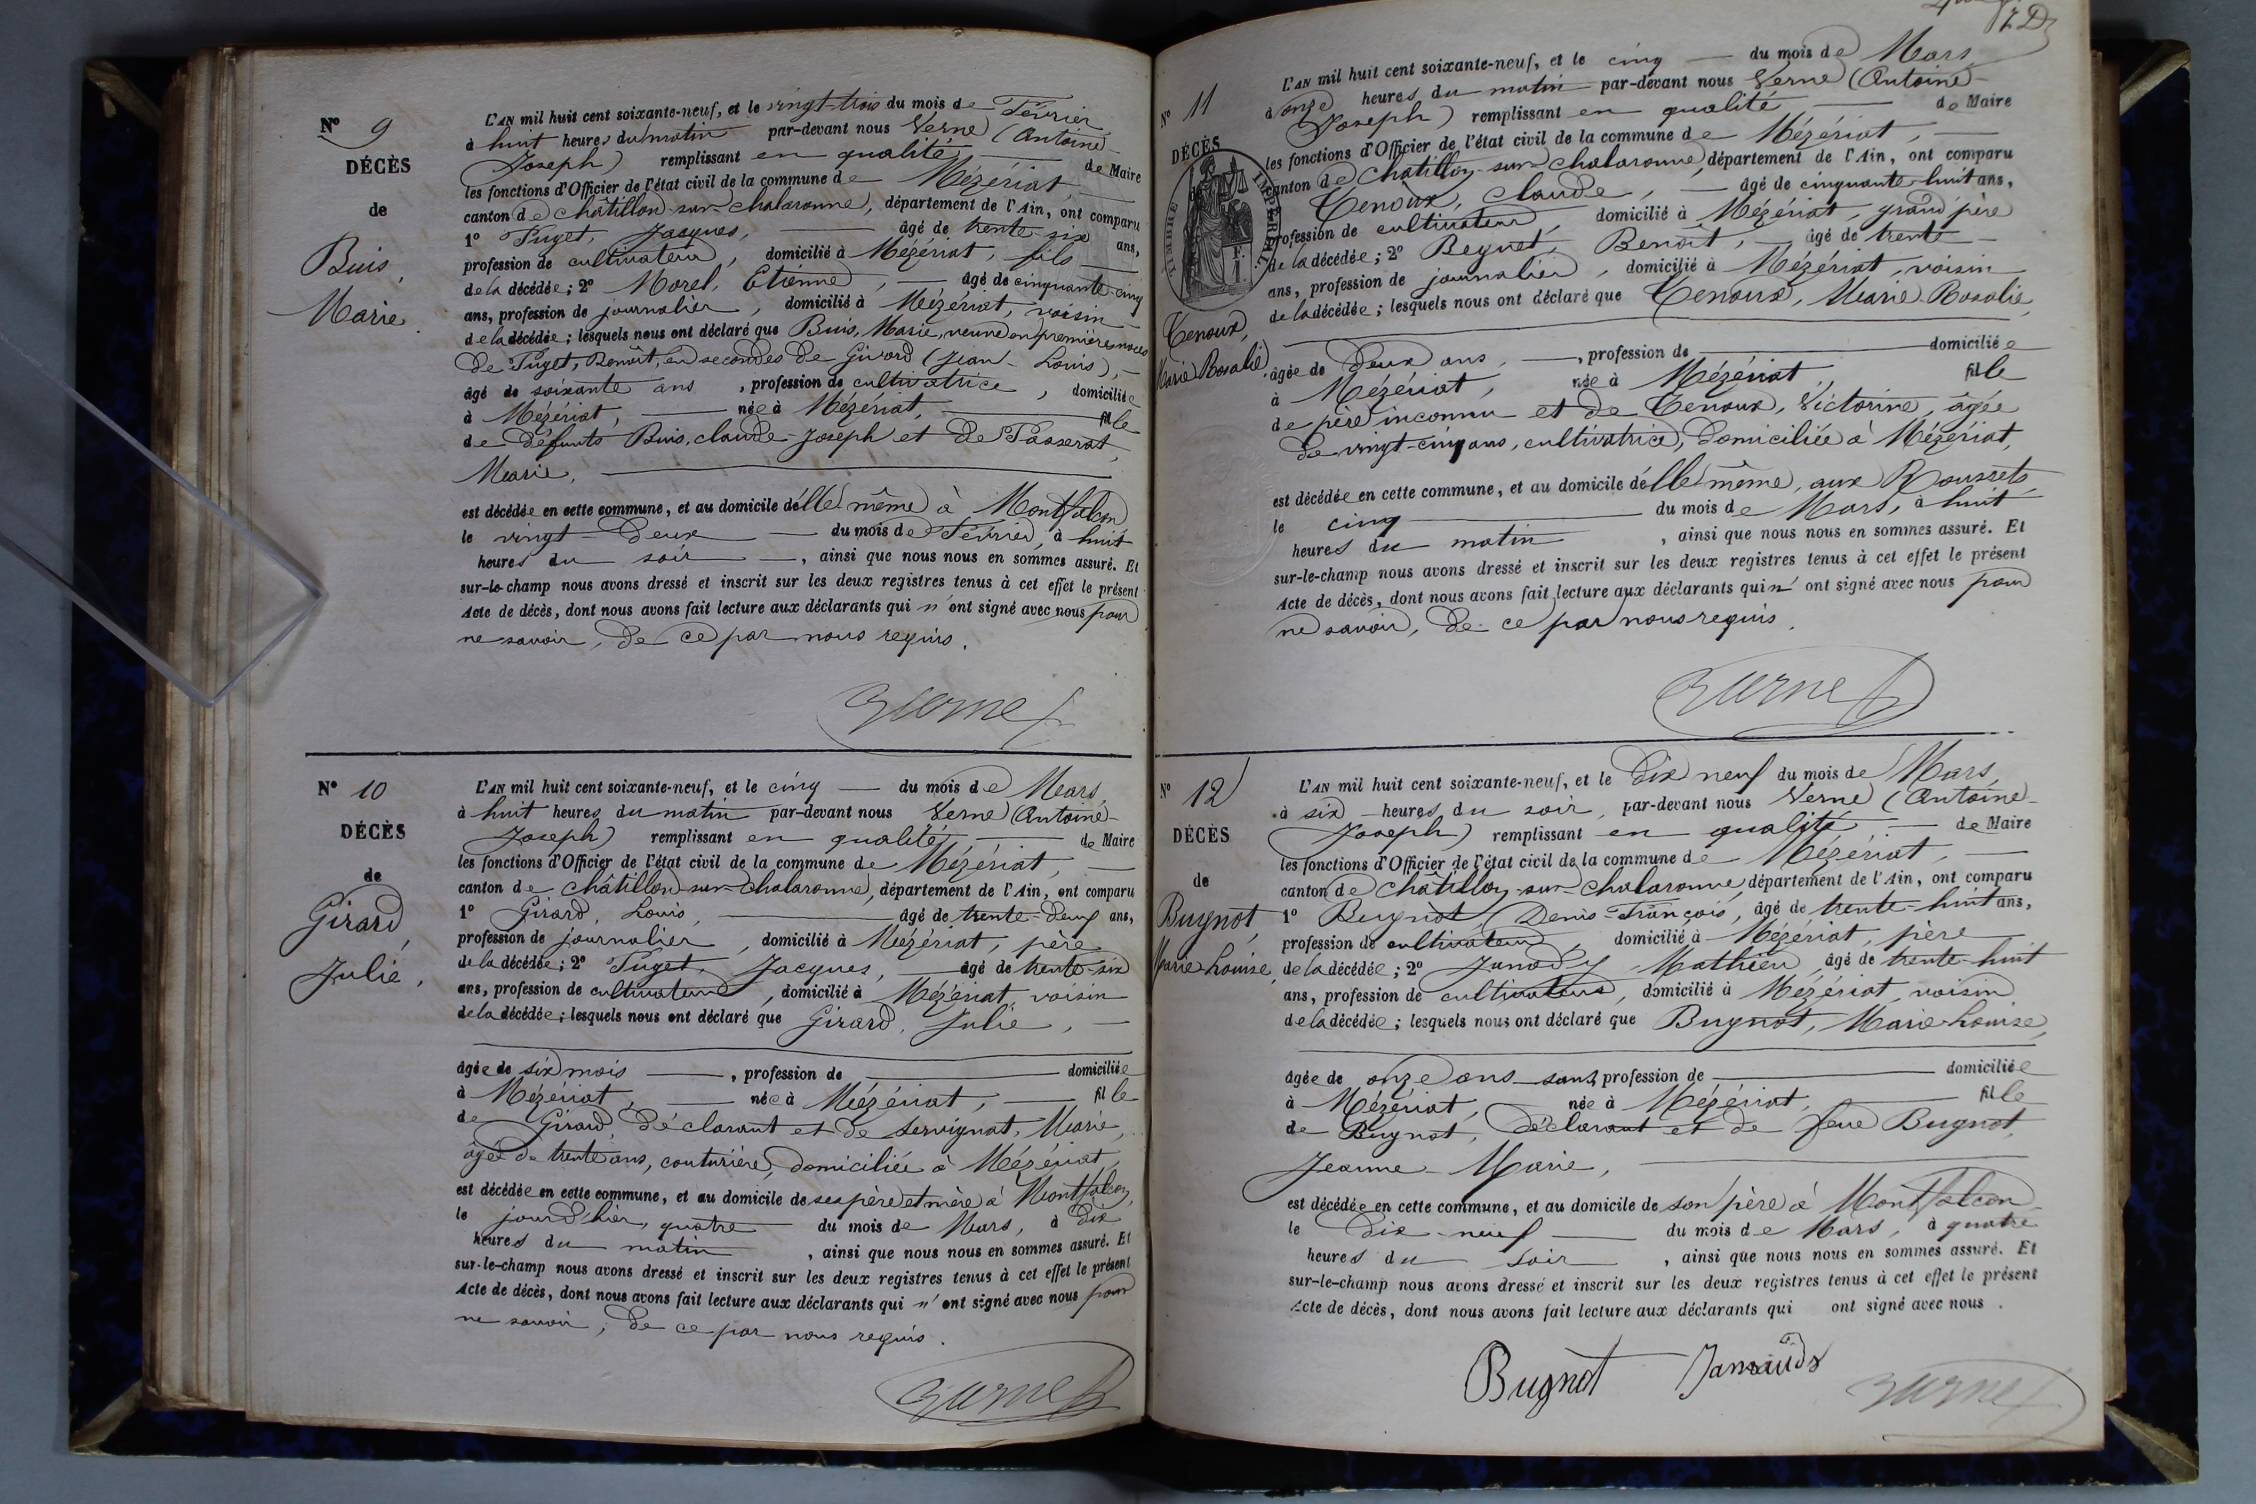 N° 9
DÉCÈS
de
Buis,
Marie.
L'AN mil huit cent soixante-neuf, et le vingt-trois du mois de Février,
à huit heures du matin par-devant nous Verne (Antoine-
Joseph) remplissant en qualité de Maire
les fonctions d'Officier de l'état civil de la commune de Mézériat,
canton de Châtillon-sur-Chalaronne, département de l'Ain, ont comparu
1° Puget, Jacques, âgé de trente-six ans,
profession de cultivateur, domicilié à Mézériat, fils
de la décédée; 2° Morel, Etienne, âgé de cinquante-cinq
ans, profession de journalier, domicilié à Mézériat, voisin
de la décédée; lesquels nous ont déclaré que Buis, Marie, veuve en premières noces
de Puget, Benoît, en secondes de Girard (Jean-Louis),
âgé de soixante ans, profession de cultivatrice, domiciliée
à Mézériat, née à Mézériat, fille
de défunts Buis, Claude-Joseph et de Passerat,
Marie,
est décédée en cette commune, et au domicile d'elle même à Montfalcon
le vingt-deux du mois de Février, à huit
heures du soir, ainsi que nous nous en sommes assuré. Et
sur-le-champ nous avons dressé et inscrit sur les deux registres tenus à cet effet le présent
Acte de décès, dont nous avons fait lecture aux déclarants qui n'ont signé avec nous pour
ne savoir, de ce par nous requis.
Verne
N° 10
DÉCÈS
de
Girard,
Julie,
L'AN mil huit cent soixante-neuf, et le cinq du mois de Mars,
à huit heures du matin par-devant nous Verne (Antoine-
Joseph) remplissant en qualité de Maire
les fonctions d'Officier de l'état civil de la commune de Mézériat,
canton de Châtillon-sur-Chalaronne, département de l'Ain, ont comparu
1° Girard, Louis, âgé de trente-deux ans,
profession de journalier, domicilié à Mézériat, père
de la décédée; 2° Puget, Jacques, âgé de trente-six
ans, profession de cultivateur, domicilié à Mézériat, voisin
de la décédée; lesquels nous ont déclaré que Girard, Julie,
âgée de six mois, profession de domiciliée
à Mézériat, née à Mézériat, fille
de Girard, déclarant et de Servignat, Marie,
âgée de trente ans, couturière, domiciliée à Mézériat,
est décédée en cette commune, et au domicile de ses père et mère à Montfalcon,
le jour d'hier, quatre du mois de Mars, à dix
heures du matin, ainsi que nous nous en sommes assuré. Et
sur-le-champ nous avons dressé et inscrit sur les deux registres tenus à cet effet le présent
Acte de décès, dont nous avons fait lecture aux déclarants qui n'ont signé avec nous pour
ne savoir, de ce par nous requis.
Verne
N° 11
DÉCÈS
TIMBRE IMPERIAL
Tenoux,
Marie Rosalie
L'AN mil huit cent soixante-neuf, et le cinq du mois de Mars,
à onze heures du matin par-devant nous Verne (Antoine-
Joseph) remplissant en qualité de Maire
les fonctions d'Officier de l'état civil de la commune de Mézériat,
canton de Châtillon-sur-Chalaronne, département de l'Ain, ont comparu
Tenoux, Claude, âgé de cinquante-huit ans,
profession de cultivateur, domicilié à Mézériat, grand'père
de la décédée; 2° Beynet, Benoît, âgé de trente
ans, profession de journalier, domicilié à Mézériat, voisin
de la décédée; lesquels nous ont déclaré que Tenoux, Marie Rosalie,
âgée de deux ans, profession de domiciliée
à Mézériat, née à Mézériat, fille
de père inconnu et de Tenoux, Victorine, âgée
de vingt-cinq ans, cultivatrice, domiciliée à Mézériat,
est décédée en cette commune, et au domicile d'elle même, aux Roussets
le cinq du mois de Mars, à huit
heures du matin, ainsi que nous nous en sommes assuré. Et
sur-le-champ nous avons dressé et inscrit sur les deux registres tenus à cet effet le présent
Acte de décès, dont nous avons fait lecture aux déclarants qui n'ont signé avec nous pour
ne savoir, de ce par nous requis.
Verne
N° 12
DÉCÈS
de
Bugnot,
Marie Louise,
L'AN mil huit cent soixante-neuf, et le dix neuf du mois de Mars,
à six heures du soir, par-devant nous Verne (Antoine-
Joseph) remplissant en qualité de Maire
les fonctions d'Officier de l'état civil de la commune de Mézériat,
canton de Châtillon-sur-Chalaronne, département de l'Ain, ont comparu
1° Bugnot (Denis-François, âgé de trente-huit ans,
profession de cultivateur, domicilié à Mézériat, père
de la décédée; 2° Janody Mathieu, âgé de trente-huit
ans, profession de cultivateur, domicilié à Mézériat, voisin
de la décédée; lesquels nous ont déclaré que Bugnot, Marie-Louise,
âgée de onze ans sans profession de domiciliée
à Mézériat, née à Mézériat, fille
de Bugnot, déclarant et de feue Bugnot,
Jeanne-Marie,
est décédée en cette commune, et au domicile de son père à Montfalcon
le dix-neuf du mois de Mars, à quatre
heures du soir, ainsi que nous nous en sommes assuré. Et
sur-le-champ nous avons dressé et inscrit sur les deux registres tenus à cet effet le présent
Acte de décès, dont nous avons fait lecture aux déclarants qui ont signé avec nous.
Bugnot
Verne